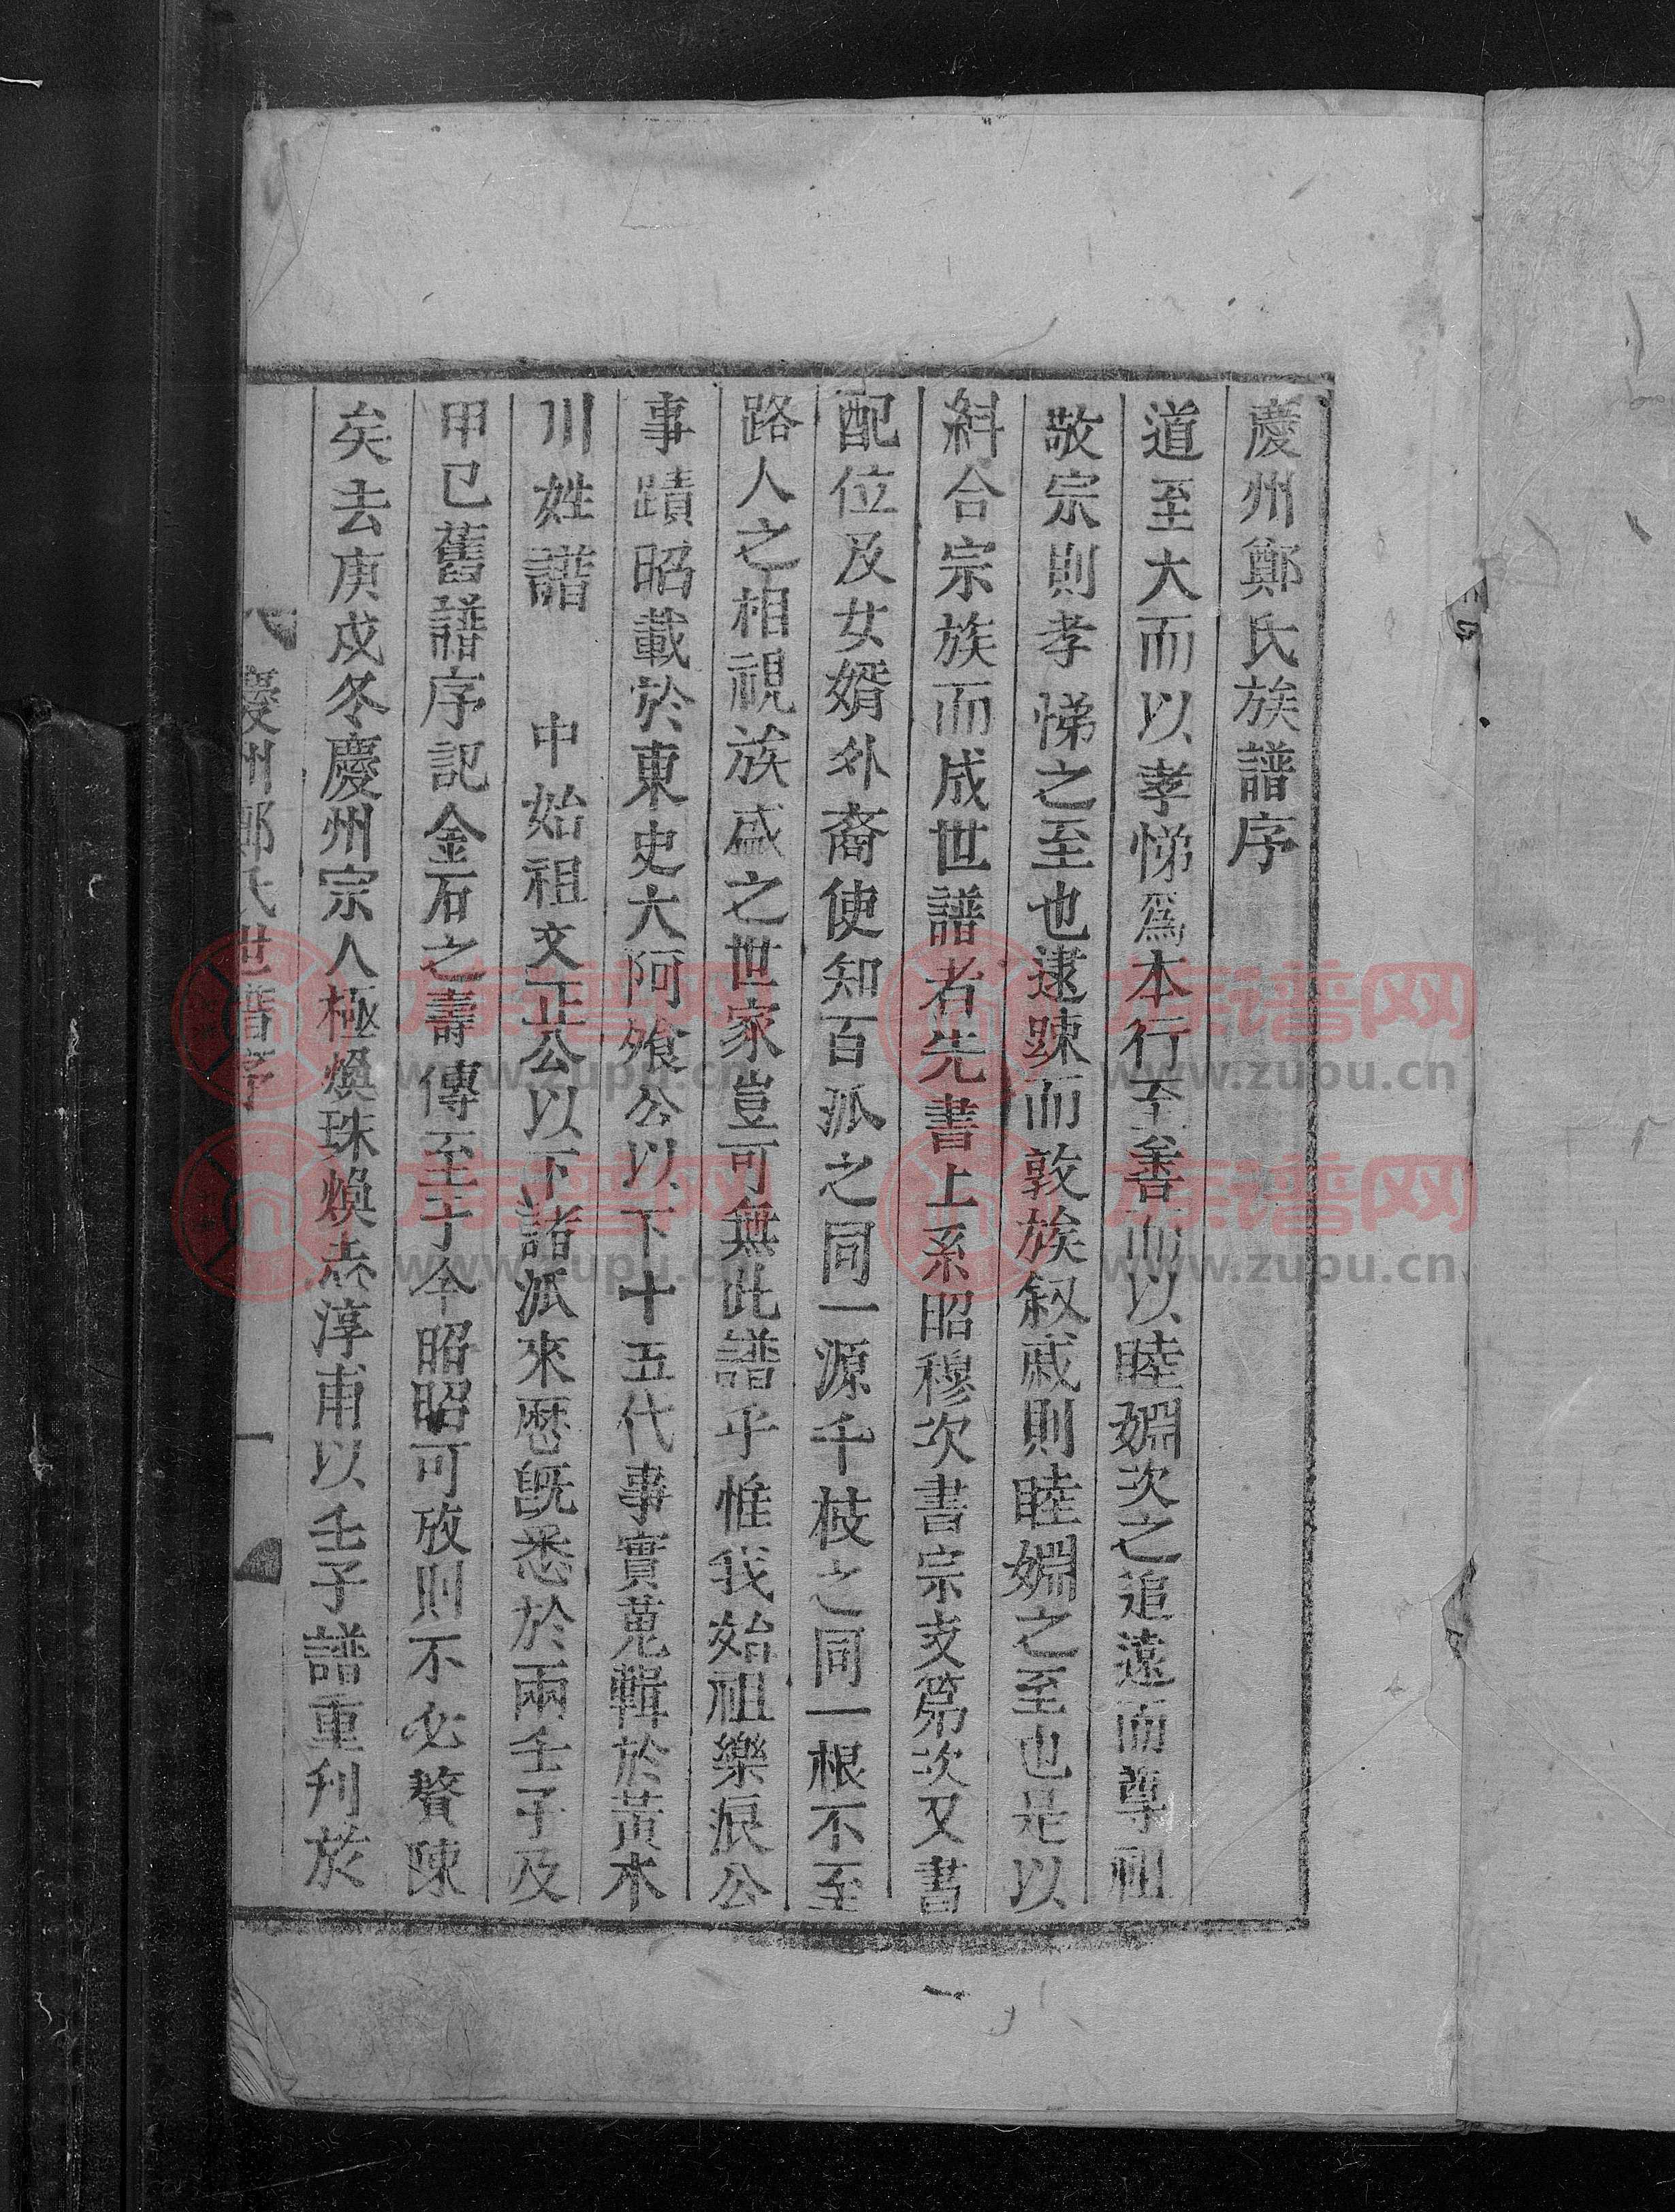 慶州鄭氏族譜序
道至大而以孝悌爲本行至善而以睦婣次之追遠而尊祖
敬宗則孝悌之至也逮踈而敦族叙戚則睦婣之至也是以
糾合宗族而成世譜者先書上系昭穆次書宗支苐次又書
配位及女婿外裔使知百派之同一源千枝之同一根不至
路人之相視族戚之世家豈可無此譜乎惟我始祖樂浪公
事蹟昭載於東史大阿飱公以下十五代事實蒐輯於黃木
川姓譜 中始祖文正公以下諸派來歷旣悉於兩壬子及
甲巳舊譜序記金石之壽傳至于今昭昭可攷則不必贅陳
矣去庚戌冬慶州宗人極煥珠煥 淳甫以壬子譜重刊於
慶州鄭氏世譜序
一
族谱网
www.zupu.cn
族谱网
www.zupu.cn
族谱网
www.zupu.cn
族谱网
www.zupu.cn